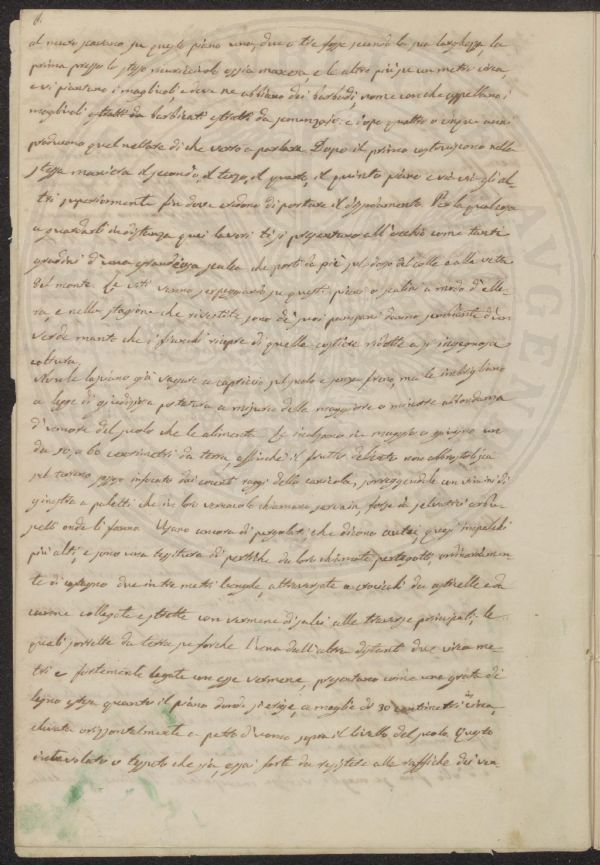 8.
al muro scavano su questo piano una, due o tre fosse secondo la sua larghezza la
prima presso lo stesso muricciuolo ossia macera e le altre più in su un metro circa,
e vi piantano i magliuoli, e dove ne abbiano dei barbadi, nome con che appellano i
magliuoli da barbicati estratti da semenzajo: e dopo quattro o cinque anni
producono quel nettare di che verrò a parlare. Dopo il primo costruiscono nella
stessa maniera il secondo, il terzo, il quarto, il quinto piano e via via gli al
tri superiormente fin dove credono di portare il dissodamento. Per la qual cosa
a guardarli in distanza quei lavori ti si presentano all'occhio come tante
gradini d'una grandiosa scalea che porti da piè sul dosso del colle e alla vetta
del monte. Le viti vanno serpeggiando su questi piani o scalini a modo d'elle-
ra e nella stagione che rivestite sono de' suoi pampani danno sembianza d'un
verde manto che i fianchi ricopre di quelle costiere ridotte a sì ingegnosa
coltura.
Non le lasciano già vagare a capriccio sul suolo e senza freno, ma le imbrigliano
a legge di giudiziosa potatura a misura della maggiore o minore abbondanza
d'umore del suolo che le alimenta. Le inalzano in maggio o giugno un
da 50, a 60 centimetri da terra, affinchè il frutto delicato non abbrustolisca
sul terreno sasso infocato dai cocenti raggi della canicola, sorreggendole con vincini di
ginestra a paletti che in lor vernacolo chiamano
forse da selvatici arbu-
scelli onde li fanno. Usano ancora di pergolati, che dicono autei quasi
più alti, e sono una tessitura di pertiche da loro chiamate pertegati, ordinariamen-
te di castagno due in tre metri lunghe, attraversate a crocicchi da
canne collegate e strette con vermene di salci alle traverse principali; le
quali sorrette da terra su forche l'una dall'altra distanti due circa me-
tri e fortemente legate con esse vermene, presentano come una grata di
legno estesa quanto il piano donde si erige, a maglie di 30 centimetri circa,
elevata orizzontalmente a petto d'uomo sopra il livello del suolo. Questo
intavolato o tappeto che sia, assai forte da resistere alle raffiche dei ven-